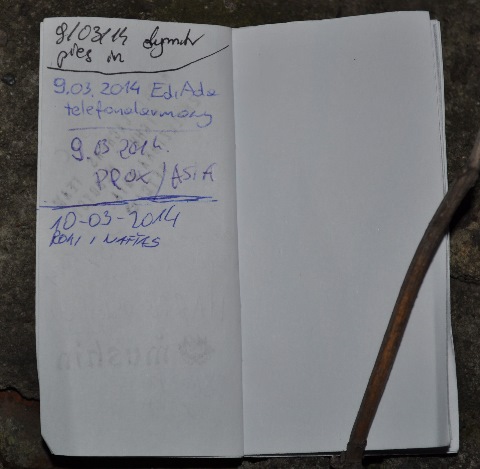 9/03/14 dymitr
pies in
9.03.2014 Ed i Ada
telefondarmowy
9.03 2014.
PROX / ASIA
10-03-2014
ROMI I NAFTAS